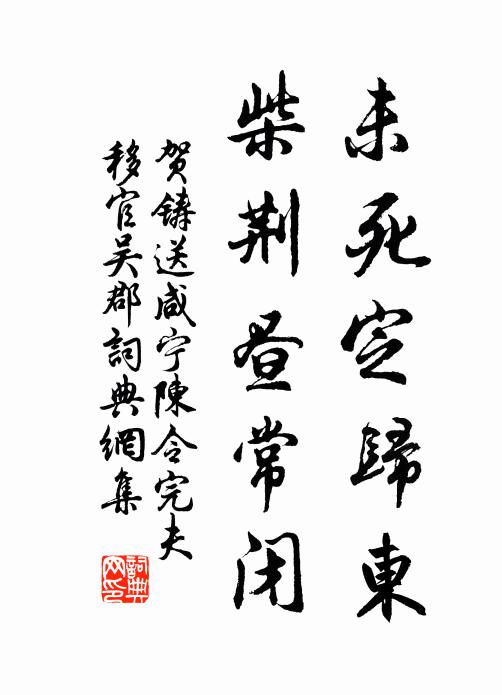 未死定歸東
柴荆昼常闭
贺鑄送咸宁陳令完夫
移官吴郡詞典網集
詞典
网印